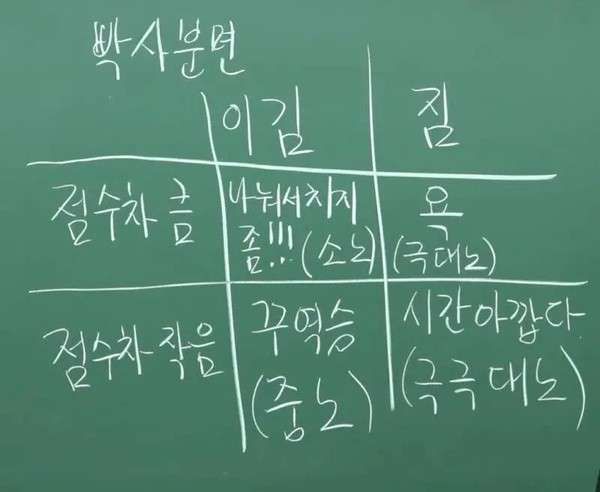 빡사분면
이김 짐
점수차 큼 나눠서치지 욕
좀!!! (소노) (극대노)
점수차 작음 꾸역승 시간아깝다
(중노) (극극대노)